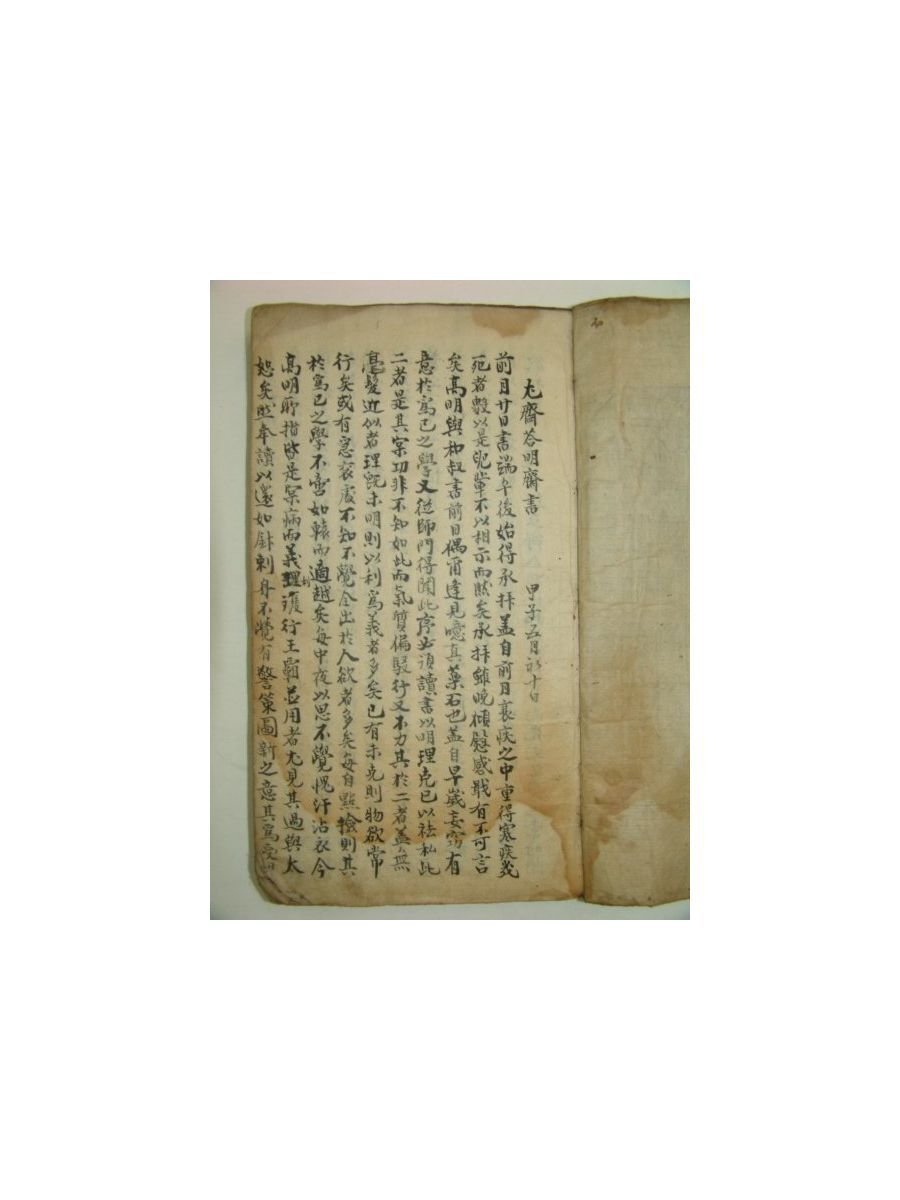 尤齋答明齋書 甲子五月初十日
前月廿日書端午後始得承拜盖自前月衰疾之中重得寒疾幾
死者數以是兒輩不以相示而然矣承拜雖晩傾慰感戢有不可言
矣高明與和叔書前日偶甭逢見噫真藥石也盖自早歲妄窃有
意於爲己之學又從師門得聞此序必須讀書以明理克己以祛私此
二者是其宲功非不知如此而氣質偏駁行又不力其於二者盖無
毫髮近似者理旣未明則以利爲義者多矣己有未克則物欲常
行矣或有急衮處不知不覺全出於人欲者多矣每自點檢則其
於爲己之學不啻如轅而適越矣每中夜以思不覺愧汗沾衣今
高明所指皆是宲病而義理雙行王霸並用者尤見其過與太
恕矣然奉讀以還如針刺身不覺有警策圖新之意其爲受